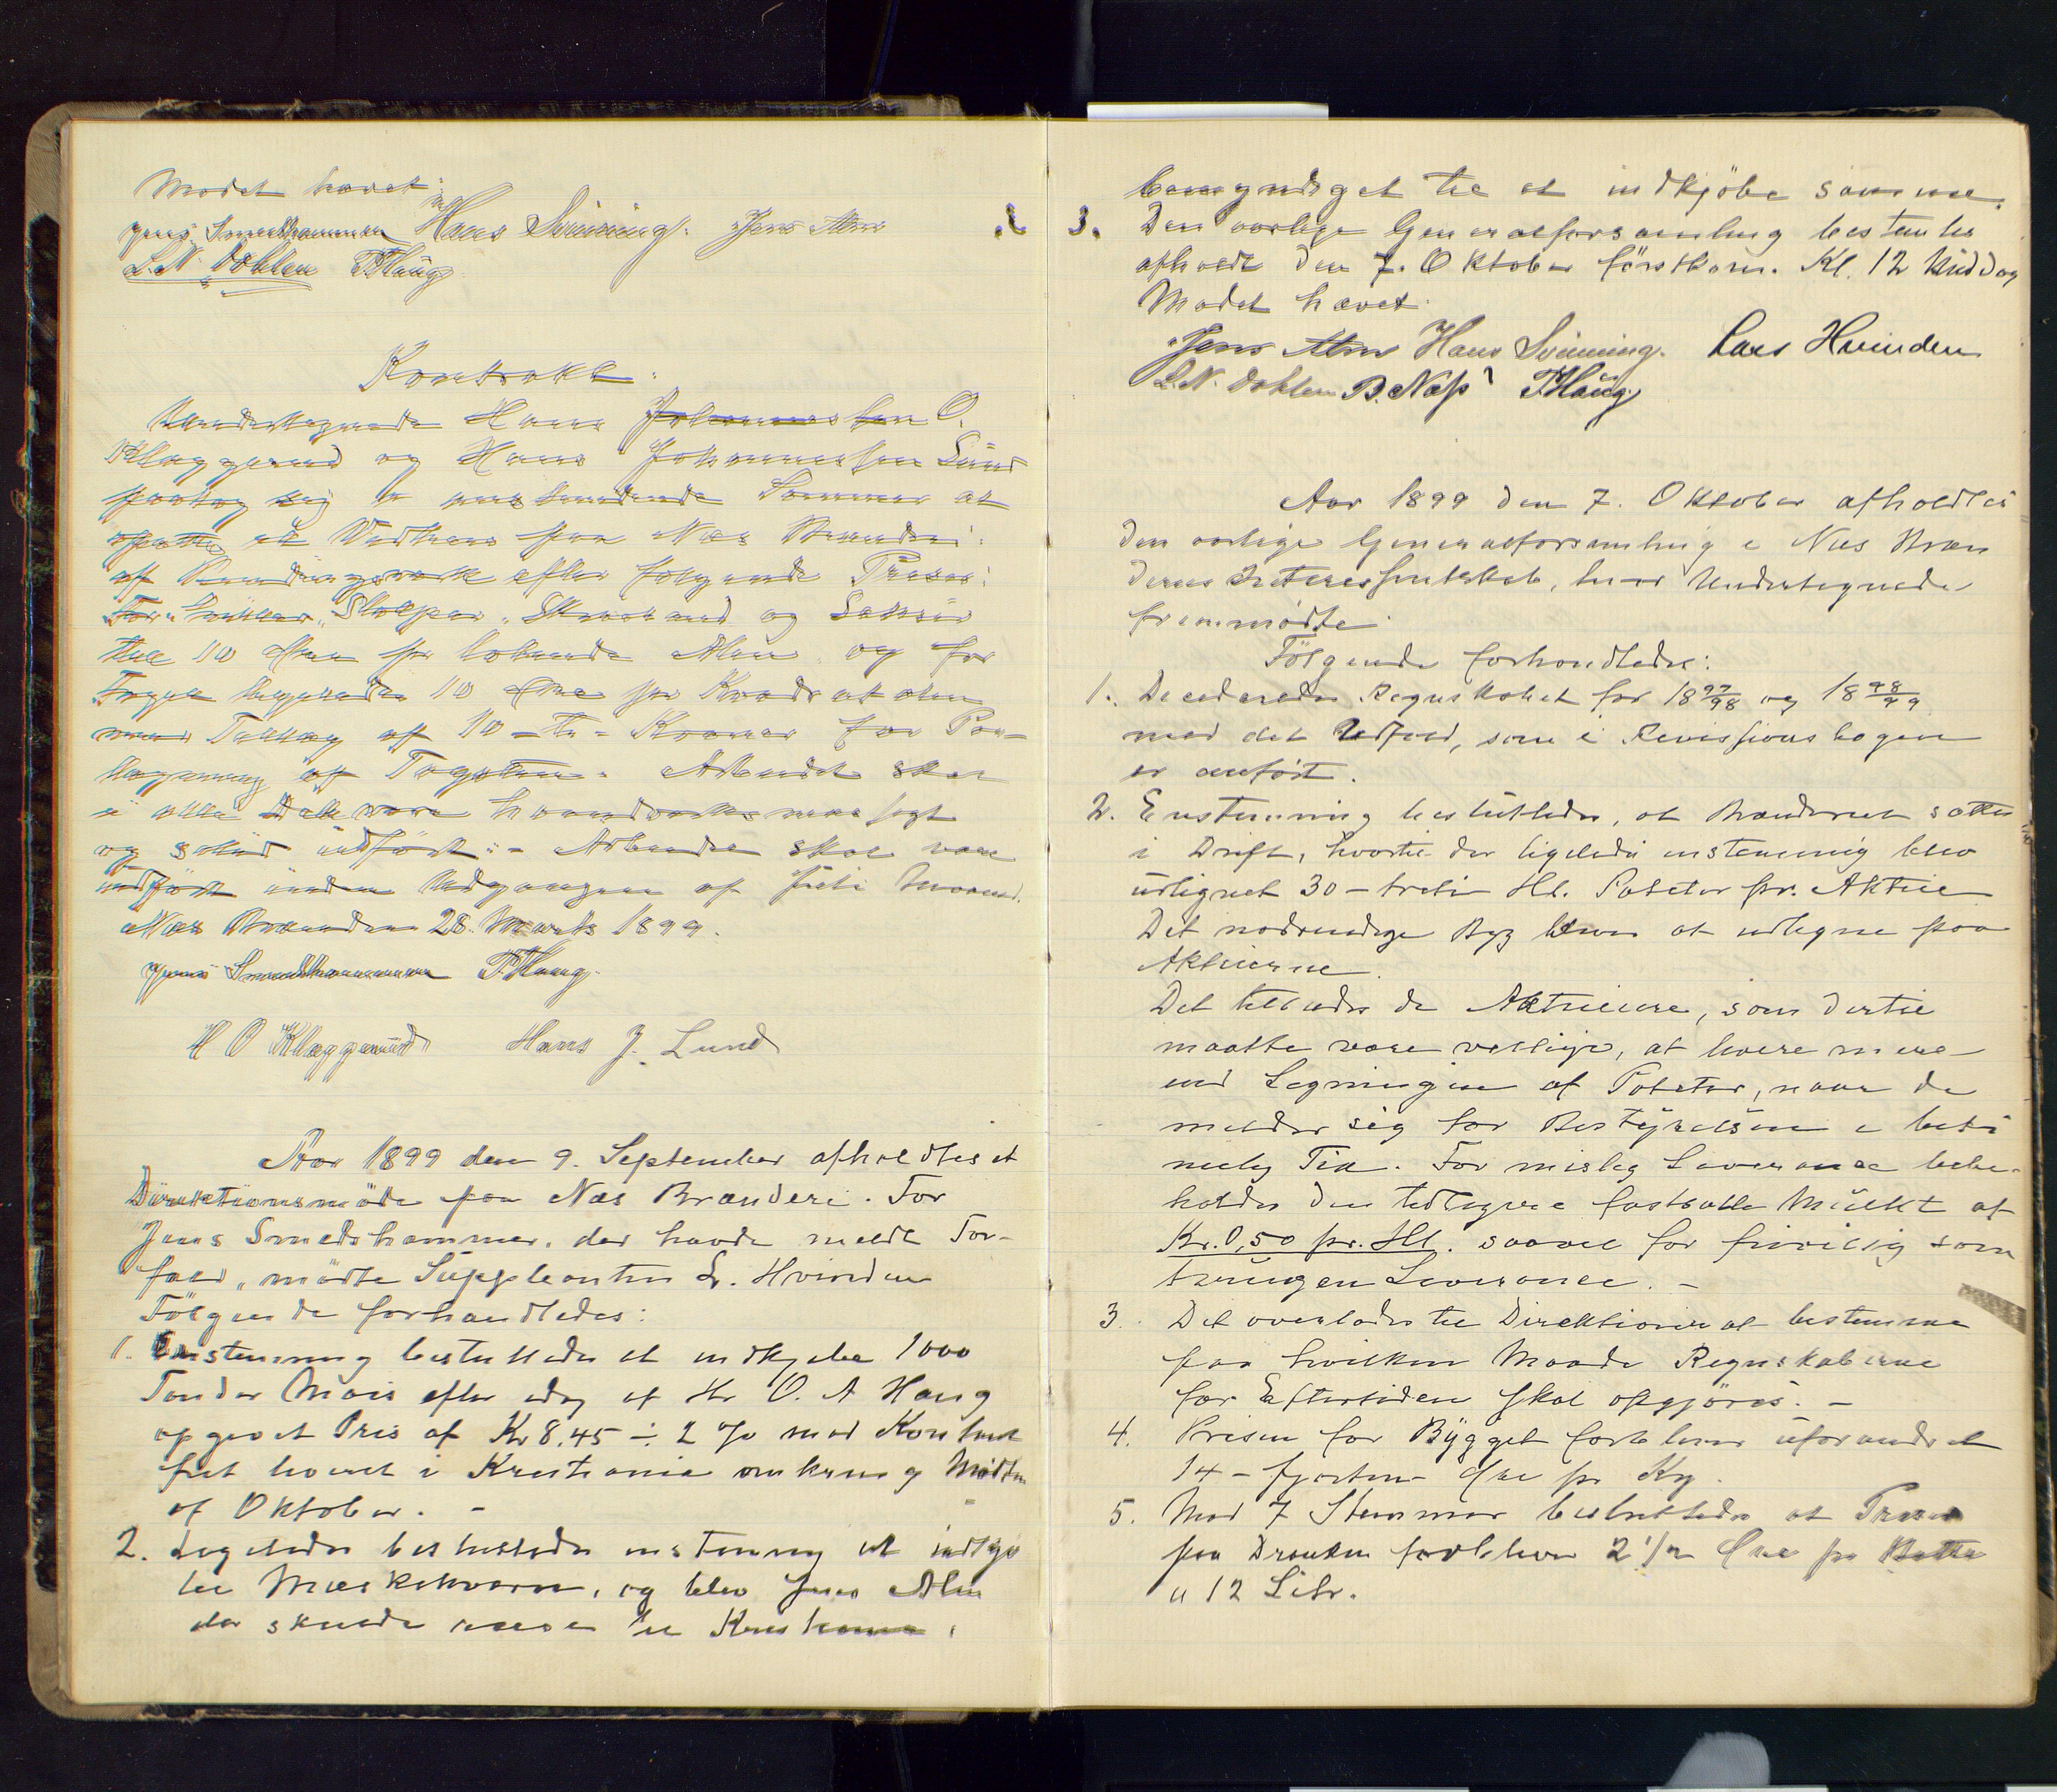 Mødet hævet:
Jens Smedshammer Hans Svinning. Jens Alm
L. N. Dæhlen P. Haug
Kontrakt.
Undertegnede Hans Johannessen O.
Klæggerud og Hans Johannessen Lund
paatog sig i Sommer at
opsætte et Vedhus paa Næs Brænderi
af Bindingsværk efter følgende Priser:
For Sviller, Stolper, Skraaband og
till 10 Øre pr løbende Alen og for
10 Øre pr Kvadratalen
med Tillæg af 10 - ti - Kroner for Paa-
lægning af Tagsten. Arbeidet skal
i alle Dele være haandværksmæssigt
og solid udført. - Arbeidet skal være
udført inden Udgangen af Juli Maaned.
Næs Brænderi 28. Marts 1899.
Jens Smedshammer P. Haug.
H O Klæggerud Hans J. Lund
Aar 1899 den 9. September afholdtes et
Direktionsmøde paa Næs Brænderi. For
Jens Smedshammer, der havde meldt For-
fald, mødte Suppleanten L. Hvinden
Følgende forhandledes:
1. Enstemmig besluttedes at indkjøbe 1000
Tønder Mais efter idag af Hr O. A Haug
opgivet Pris af Kr 8,45 ÷ 2 % mod Kontant
frit leveret i Kristiania omkring Midten
af Oktober. -
2. Ligeledes besluttedes enstemmig at indkjø
be Mæskekværn, og blev Jens Alm
der skulde reise til Kristiania,
bemyndiget til at indkjøbe samme.
3. Den aarlige Generalforsamling bestemtes
afholdt den 7. Oktober førstkom. Kl. 12 Middag
Mødet hævet
Jens Alm Hans Svinning. Lars Hvinden
L. N. Dæhlen B. Næss P. Haug
Aar 1899 den 7. Oktober afholdtes
den aarlige Generalforsamling i Næs Bræn
deries Interessentskab, hvor Undertegnede
fremmødte.
Følgende forhandledes:
1. Decideredes Regnskabet for 18 97/98 og 18 98/99
med det Udfald, som i Revissionsbogen
er anført.
2. Enstemmig besluttedes, at Brænderiet sættes
i Drift, hvortil der ligeledes enstemmig blev
udlignet 30 - treti Hl. Poteter pr. Aktie
Det nødvendige Byg bliver at udligne paa
Aktierne.
Det tillades de Aktieiere, som dertil
maatte være villige, at levere mere
end Ligningen af Poteter, naar de
melder sig for Bestyrelsen i beti
melig Tid. For mislig Leverance bebe-
holdes den tidligere fastsatte Mulkt af
Kr. 0,50 pr. Hl. saavel for frivillig som
tvungen Leverance. -
3. Det overlades til Direktionen at bestemme
paa hvilken Maade Regnskaberne
for Eftertiden skal opgjøres. -
4. Prisen for Bygget forbliver uforandret
14 - fjorten - Øre pr Kg.
5. Mod 7 Stemmer besluttedes at Prisen
paa Dranken forbliver 2 1/2 Øre pr Bøtte
a 12 Litr.